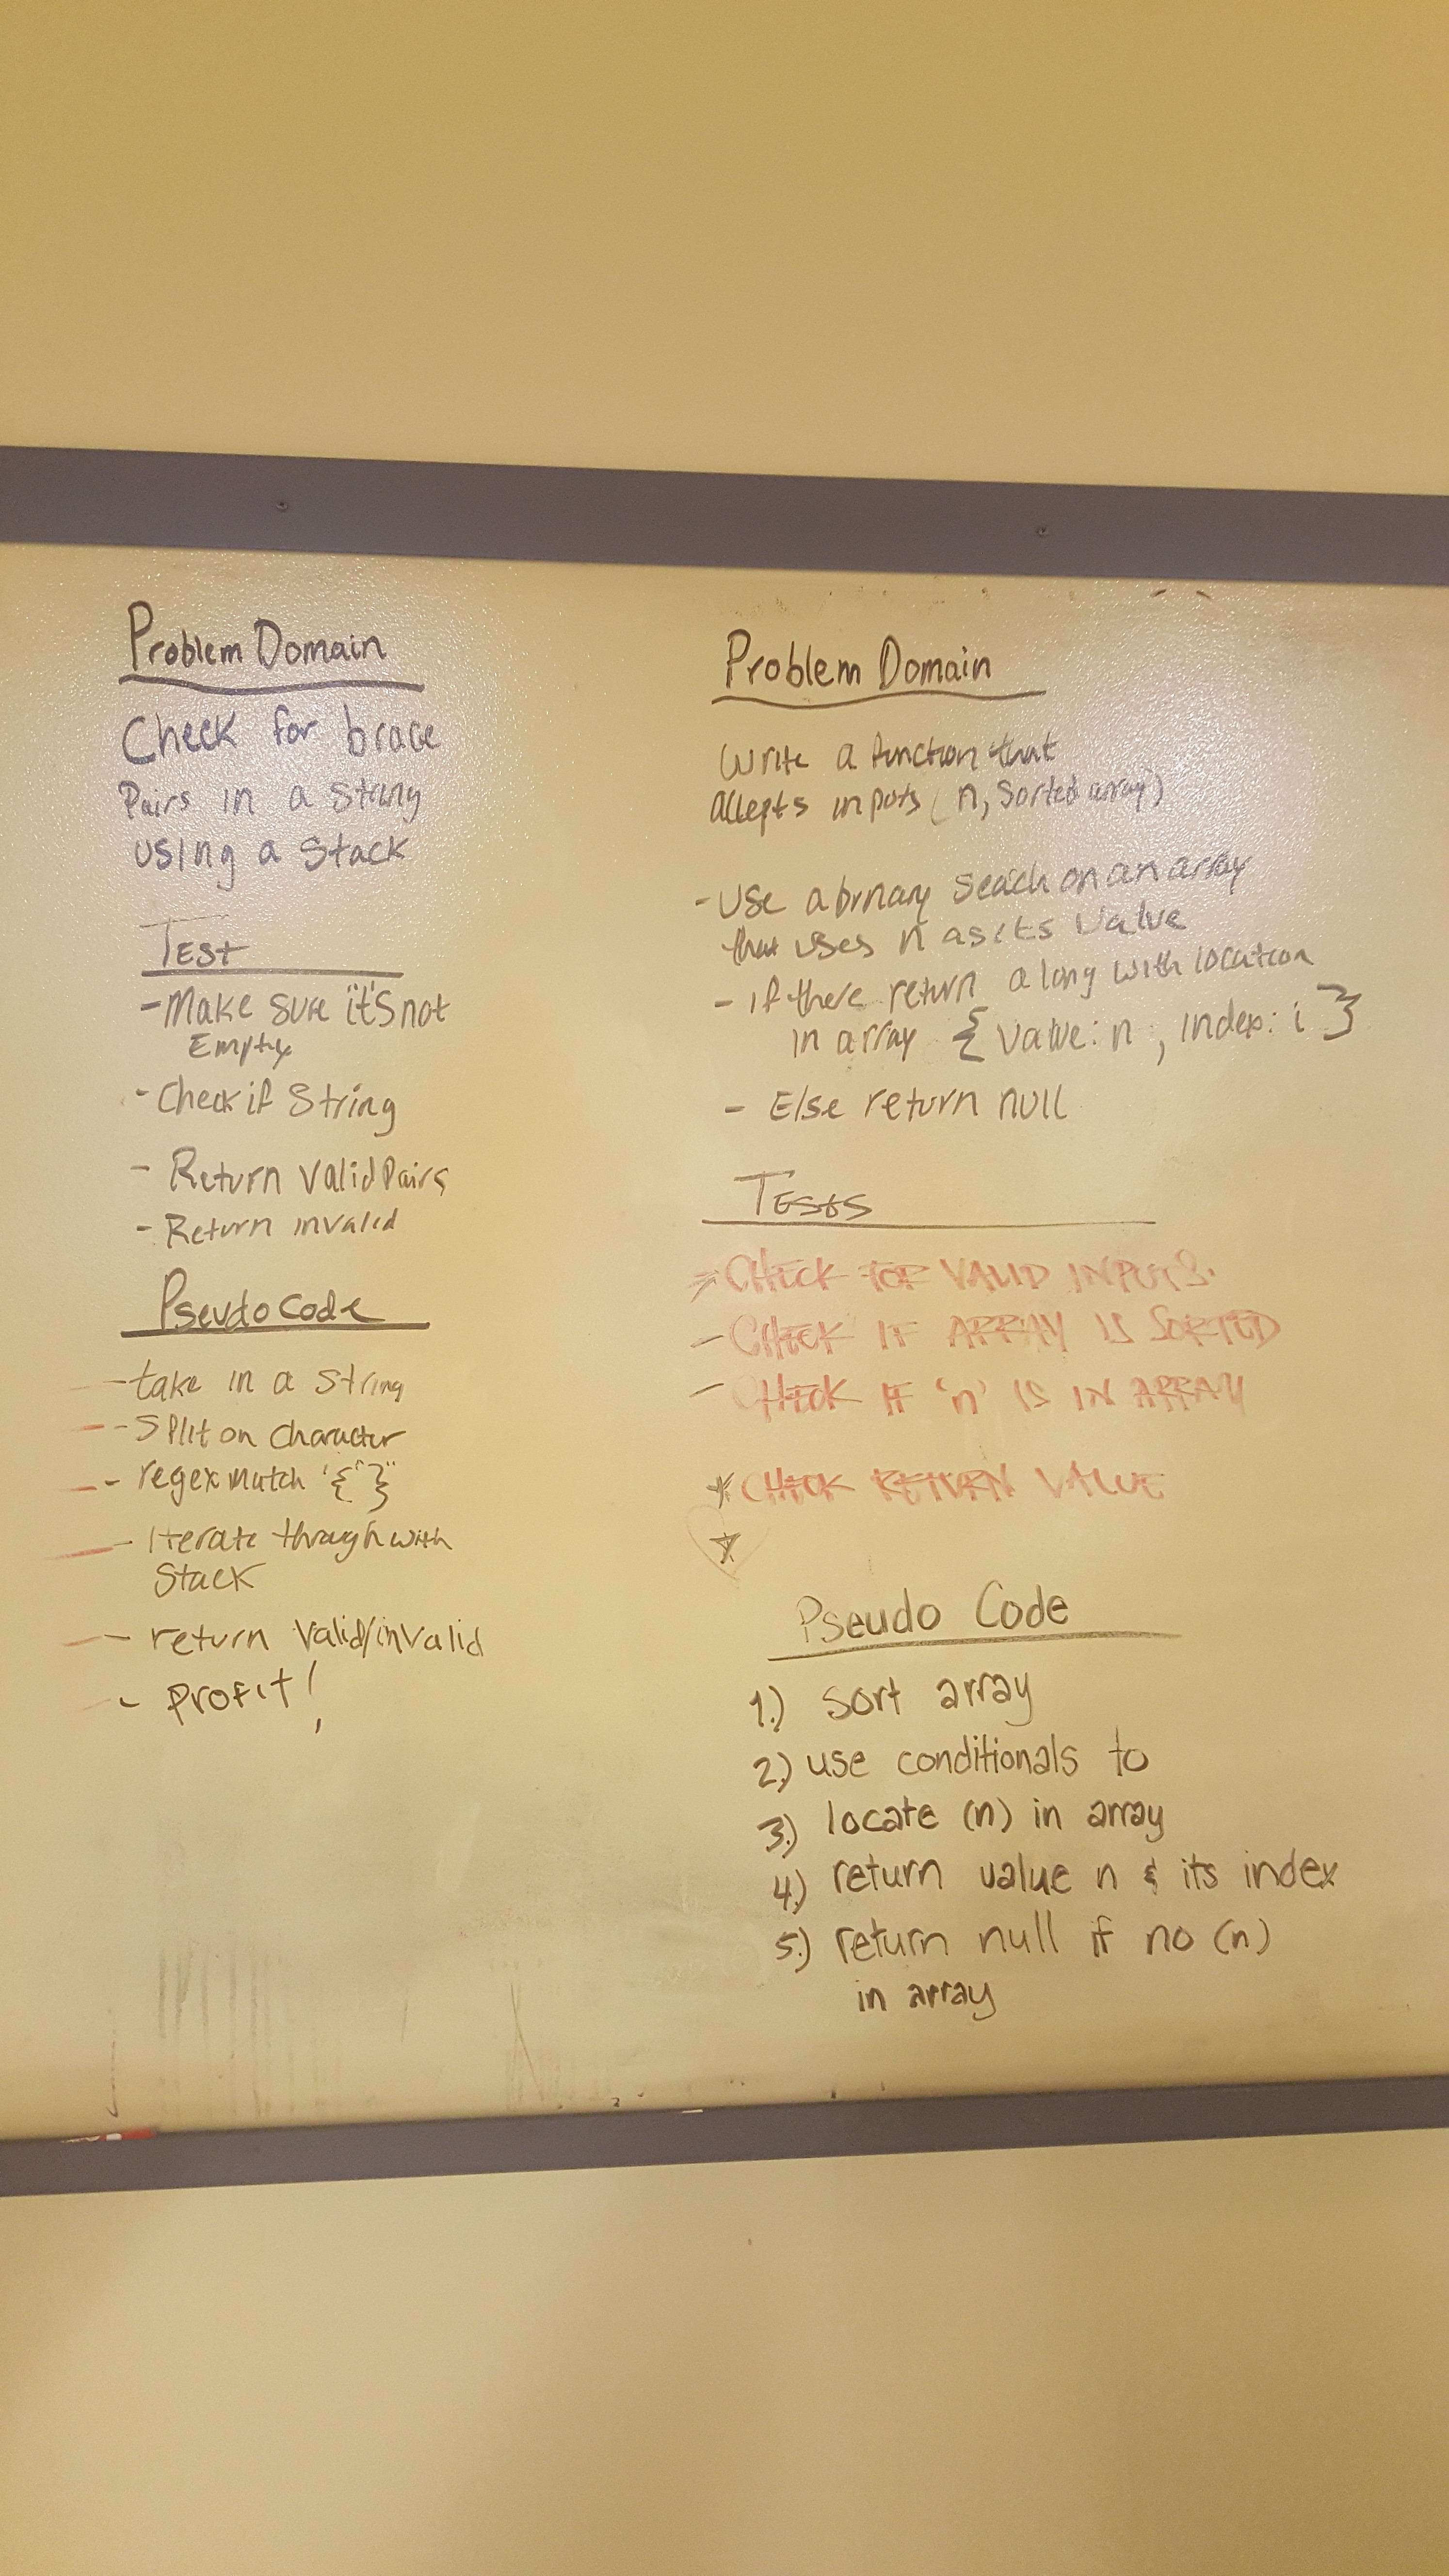 Problem Domain
Check for brace
Pairs in a string
using a Stack
Test
- Make sure it's not
Empty
- Check if String
- Return Valid Pairs
- Return invalid
Pseudo Code
- take in a string
- Split on Character
- regex match "{" "}"
- Iterate through with
Stack
- return Valid/invalid
- Profit!
Problem Domain
Write a function that
accepts inputs (n, Sorted array)
- Use a binary search on an array
that uses n as its value
- if there return along with location
in array { value: n, index: i }
- Else return null
Tests
- CHECK FOR VALID INPUTS.
- CHECK IF ARRAY IS SORTED
- CHECK IF 'n' IS IN ARRAY
* CHECK RETURN VALUE
Pseudo Code
1.) sort array
2.) use conditionals to
3.) locate (n) in array
4.) return value n & its index
5.) return null if no (n)
in array